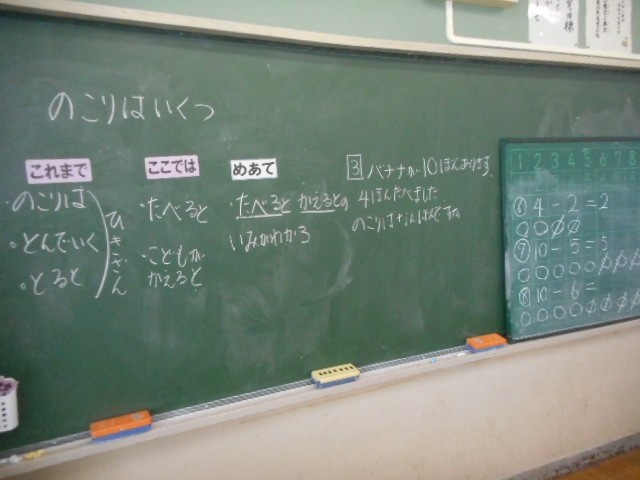 のこりはいくつ
これまで
・のこりは
・とんでいく
・とると
ひきざん
ここでは
・たべると
・こどもが
かえると
めあて
・たべると かえるとの
いみがわかろ
3 バナナが10ぽんあります
4ほんたべました
のこりはなんぼんですか
1 2 3 4 5 6 7 8
⑥ 4-2=2
⑦ 10-5=5
⑧ 10-6=